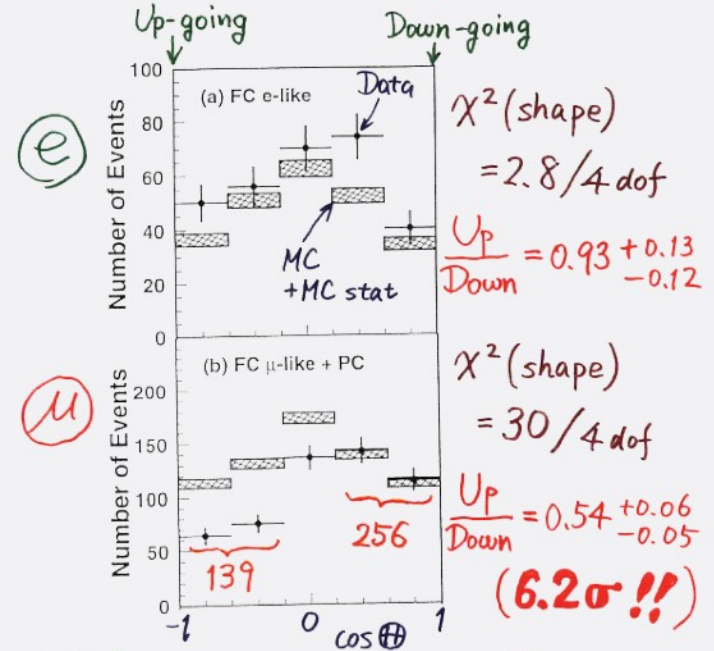 Up-going
Down-going
100
80
60
40
20
0
Number of Events
(a) FC e-like
Data
MC
+MC stat
e
χ² (shape)
= 2.8/4 dof
Up/Down = 0.93 +0.13 -0.12
200
150
100
50
0
Number of Events
(b) FC μ-like + PC
139
256
μ
χ² (shape)
= 30/4 dof
Up/Down = 0.54 +0.06 -0.05
(6.2σ !!)
-1
0
1
cos Θ